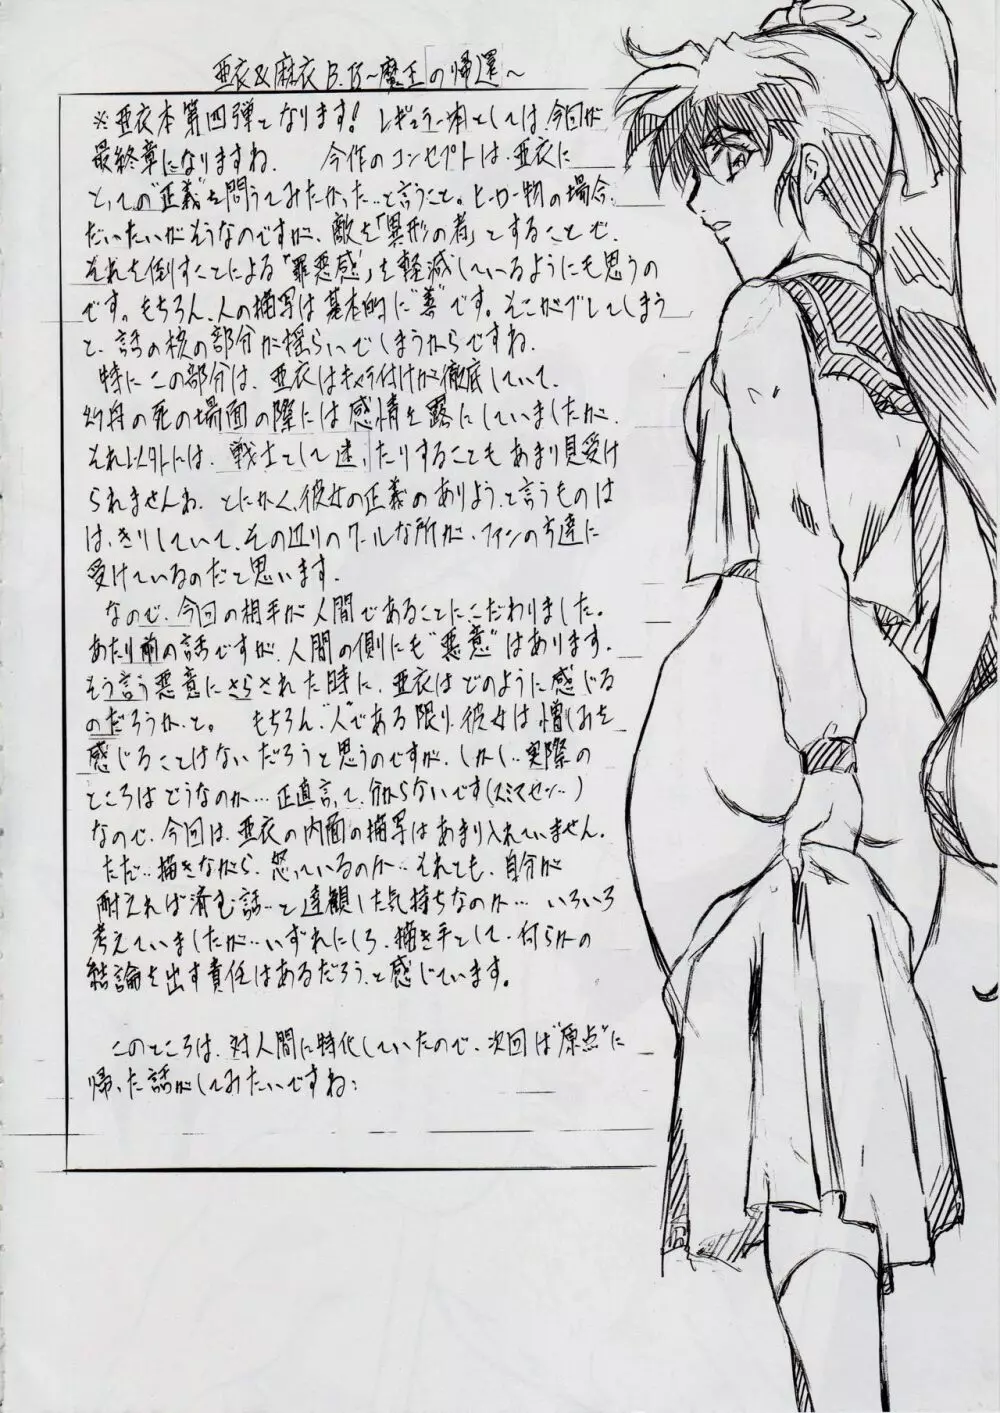 亜衣&麻衣 B.B～魔王の帰還～
※亜衣本第四弾となります! レギュラー本としては、今回が
最終章になりますね。 今作のコンセプトは、亜衣に
とっての“正義”を問うてみたかった…と言うこと。ヒーロー物の場合、
だいたいがそうなのですが、敵を「異形の者」とすることで、
それを倒すことによる“罪悪感”を軽減しているようにも思うの
です。もちろん、人の描写は基本的に“善”です。そこがブレてしまう
と、話の核の部分が揺らいでしまうからですね。
特にこの部分は、亜衣はキャラ付けが徹底していて、
幻舟の死の場面の際には感情を露にしていましたが、
それ以外には、戦士として迷ったりすることもあまり見受け
られませんね。とにかく、彼女の正義のありよう、と言うものは
はっきりしていて、その辺りのクールな所が、ファンの方達に
受けているのだと思います。
なので、今回の相手が人間であることにこだわりました。
あたり前の話ですが、人間の側にも“悪意”はあります。
そう言う悪意にさらされた時に、亜衣はどのように感じる
のだろうか、と。 もちろん、“人”である限り、彼女は憎しみを
感じることはないだろうと思うのですが、しかし…実際の
ところはどうなのか…正直言って、分からないです(スミマセン…)
なので、今回は、亜衣の内面の描写はあまり入れていません。
ただ…描きながら、怒っているのか…それとも、自分が
耐えれば済む話…と達観した気持ちなのか… いろいろ
考えていましたが…いずれにしろ、描き手として、何らかの
結論を出す責任はあるだろう、と感じています。
このところは、対人間に特化していたので、次回は“原点”に
帰った話がしてみたいですね: